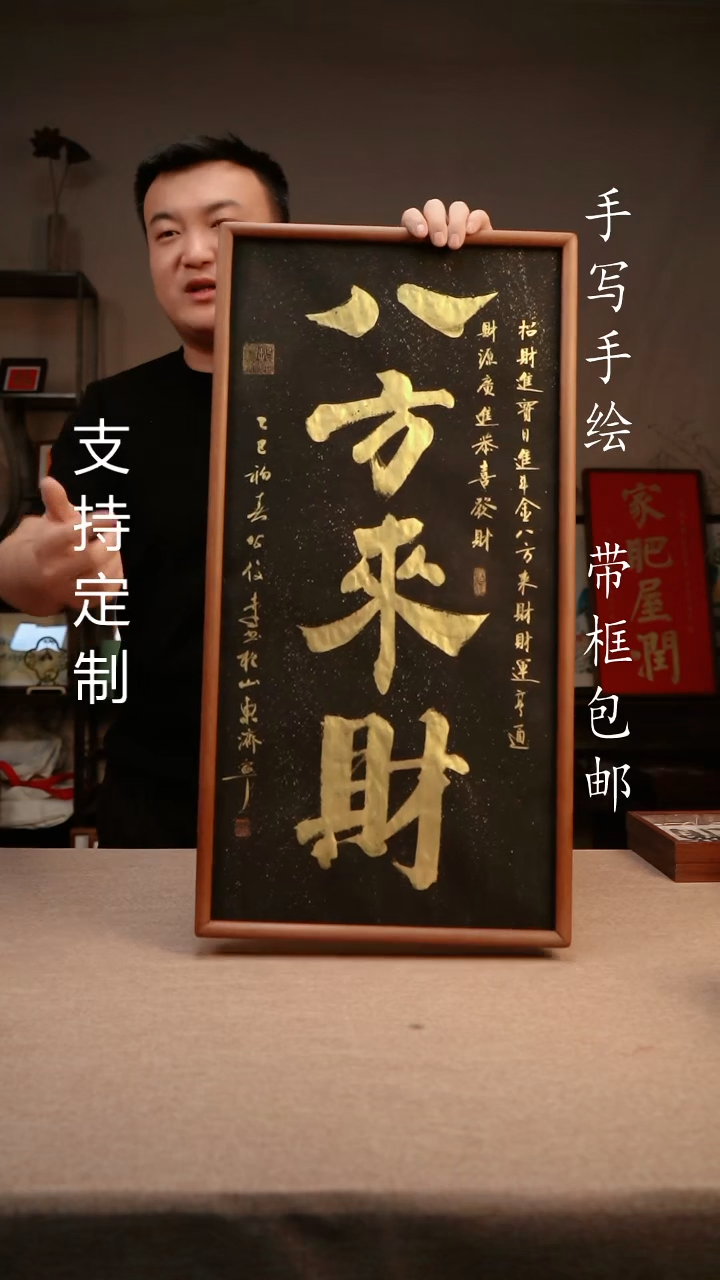 手写手绘 带框包邮
支持定制
八方來財
招財進寶日進斗金八方来財財運亨通
財源廣進恭喜發財
乙巳初春
書於山東濟寧
家肥屋潤